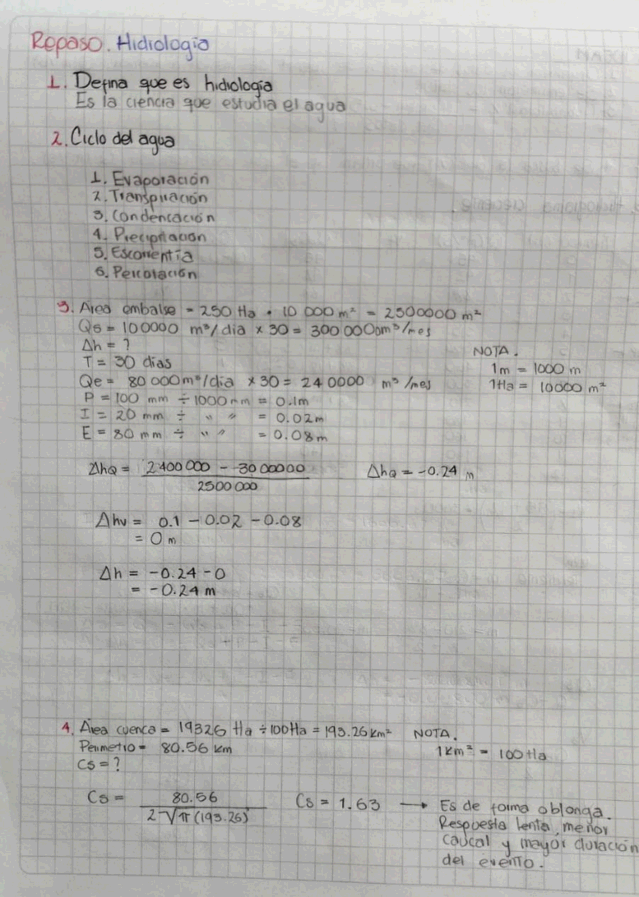 Repaso. Hidrología
1. Defina que es hidrología
Es la ciencia que estudia el agua
2. Ciclo del agua
1. Evaporación
2. Transpiración
3. Condencación
4. Precipitación
5. Escorrentía
6. Percolación
3. Area embalse = 250 Ha * 10 000 m² = 2500000 m²
Qs = 100000 m³/dia x 30 = 3000000m³/mes
Δh = ?
T = 30 dias
Qe = 80 000m³/dia x 30 = 240 0000 m³/mes
P = 100 mm ÷ 1000mm = 0.1m
I = 20 mm ÷ " " = 0.02m
E = 80 mm ÷ " " = 0.08m
NOTA.
1m = 1000 m
1Ha = 10000 m²
ΔhQ = 2400 000 - 3000000 / 2500 000
ΔhQ = -0.24 m
Δhv = 0.1 - 0.02 - 0.08
= 0 m
Δh = -0.24 - 0
= -0.24 m
4. Área cuenca = 19326 Ha ÷ 100Ha = 193.26 km²
Perimetro = 80.56 km
Cs = ?
NOTA.
1km² = 100 Ha
Cs = 80.56 / 2√π(193.26)
Cs = 1.63 → Es de forma oblonga.
Respuesta lenta, menor
caucal y mayor duración
del evento.